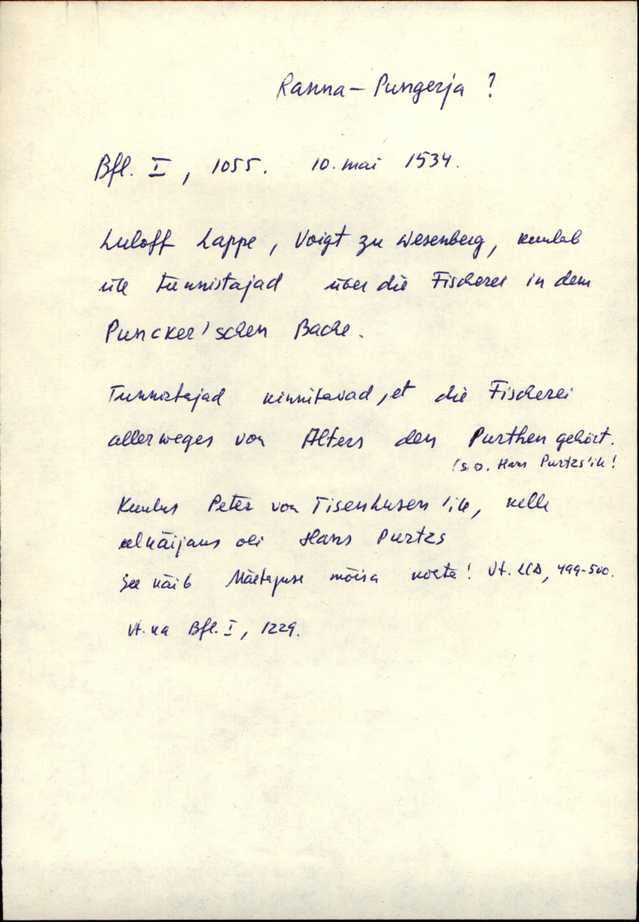 Ranna-Pungerja ?
Bfl. I, 1055. 10. mai 1534.
Luloff Lappe, Voigt zu Wesenberg, kuulab
üle tunnistajad über die Fischerei in dem
Puncker'schen Bache.
Tunnistajad kinnitavad, et die Fischerei
allerweges von Alters den Purthen gehört.
(s.o. Hans Purtzs'ile!
Kuulus Peter von Tisenhusen'ile, kelle
eelkäijaus oli Hans Purtzs
See käib Mäetaguse mõisa kohta! Vt. LCD, 499-500.
Vt. ka Bfl. I, 1229.